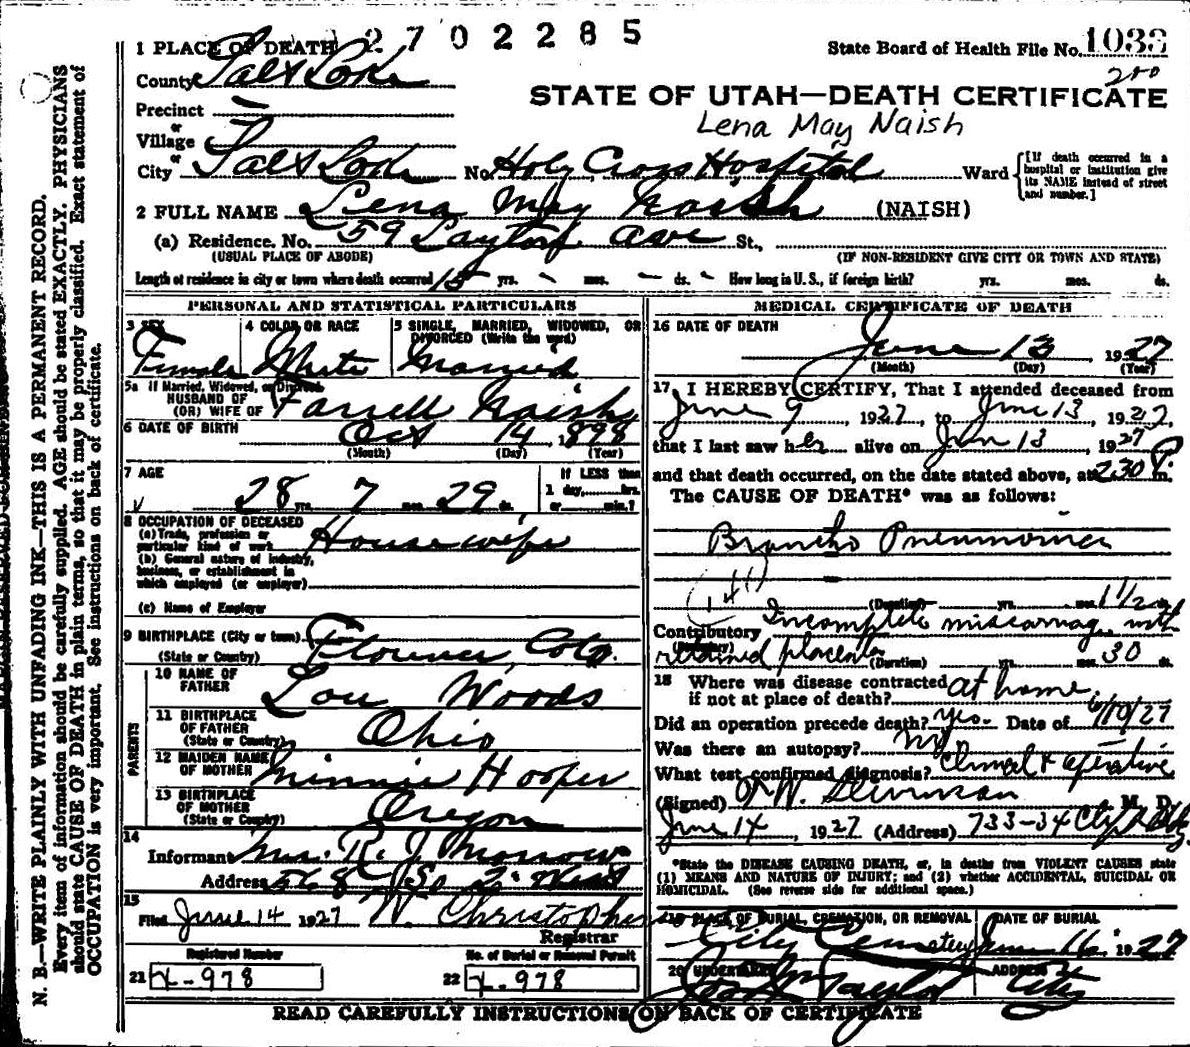 2702285
State Board of Health File No. 1038
200
STATE OF UTAH—DEATH CERTIFICATE
Lena May Naish
1 PLACE OF DEATH
County Salt Lake
Precinct —
or
Village
or
City Salt Lake No. Holy Cross Hospital Ward
[If death occurred in a hospital or institution give its NAME instead of street and number.]
2 FULL NAME Lena May Naish (NAISH)
(a) Residence. No. 59 Layton Ave St.,
(USUAL PLACE OF ABODE) (IF NON-RESIDENT GIVE CITY OR TOWN AND STATE)
Length of residence in city or town where death occurred 15 yrs. - mos. - ds. - How long in U. S., if foreign birth? yrs. mos. ds.
PERSONAL AND STATISTICAL PARTICULARS
3 SEX Female
4 COLOR OR RACE White
5 SINGLE, MARRIED, WIDOWED, OR DIVORCED (Write the word) Married
5a If Married, Widowed, or Divorced
HUSBAND OF
(OR) WIFE OF Farrell Naish
6 DATE OF BIRTH Oct 14, 1898
(Month) (Day) (Year)
7 AGE 28 yrs. 7 mos. 29 ds.
If LESS than 1 day,......hrs. or......min.?
8 OCCUPATION OF DECEASED
(a) Trade, profession or particular kind of work Housewife
(b) General nature of industry, business, or establishment in which employed (or employer)
(c) Name of Employer
9 BIRTHPLACE (City or town)
(State or Country) Florence, Colo.
PARENTS
10 NAME OF FATHER Lou Woods
11 BIRTHPLACE OF FATHER (State or Country) Ohio
12 MAIDEN NAME OF MOTHER Minnie Hooper
13 BIRTHPLACE OF MOTHER (State or Country) Oregon
14
Informant Mrs. R. J. Morrow
Address 568 So 2 West
15
Filed June 14 1927 W. Christopherson
Registrar
Registered Number
21 X-978
No. of Burial or Removal Permit
22 X-978
MEDICAL CERTIFICATE OF DEATH
16 DATE OF DEATH
June 13, 1927
(Month) (Day) (Year)
17 I HEREBY CERTIFY, That I attended deceased from
June 9, 1927, to June 13, 1927,
that I last saw her alive on June 13 1927
and that death occurred, on the date stated above, at 230 P. m.
The CAUSE OF DEATH* was as follows:
Broncho Pneumonia
(Duration) yrs. mos. 1 1/2 ds.
Contributory Incomplete miscarriage, with
(Secondary)
retained placenta (Duration) yrs. mos. 30 ds.
18 Where was disease contracted
if not at place of death? at home
Did an operation precede death? yes. Date of 6/10/27
Was there an autopsy? No
What test confirmed diagnosis? Clinical & operative
(Signed) M. D.
June 14, 1927 (Address) 733-34
*State the DISEASE CAUSING DEATH, or, in deaths from VIOLENT CAUSES state
(1) MEANS AND NATURE OF INJURY; and (2) whether ACCIDENTAL, SUICIDAL OR
HOMICIDAL. (See reverse side for additional space.)
19 PLACE OF BURIAL, CREMATION, OR REMOVAL
City Cemetery
DATE OF BURIAL
June 16, 1927
20 UNDERTAKER
Taylor
ADDRESS
City
READ CAREFULLY INSTRUCTIONS ON BACK OF CERTIFICATE
N. B.—WRITE PLAINLY WITH UNFADING INK—THIS IS A PERMANENT RECORD.
Every item of information should be carefully supplied. AGE should be stated EXACTLY. PHYSICIANS
should state CAUSE OF DEATH in plain terms, so that it may be properly classified. Exact statement of
OCCUPATION is very important. See instructions on back of certificate.